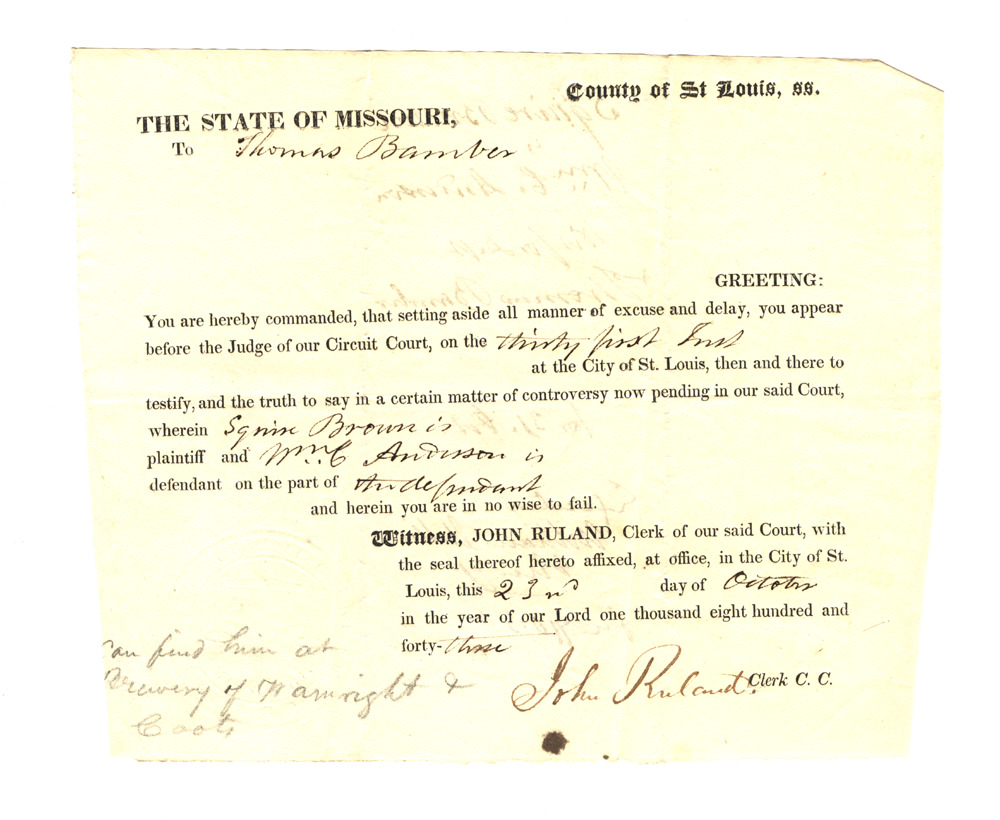 County of St Louis, ss.
THE STATE OF MISSOURI,
To Thomas Bamber
GREETING:
You are hereby commanded, that setting aside all manner of excuse and delay, you appear
before the Judge of our Circuit Court, on the thirty first Inst
at the City of St. Louis, then and there to
testify, and the truth to say in a certain matter of controversy now pending in our said Court,
wherein Squire Brown is
plaintiff and Wm. C Anderson is
defendant on the part of the defendant
and herein you are in no wise to fail.
Witness, JOHN RULAND, Clerk of our said Court, with
the seal thereof hereto affixed, at office, in the City of St.
Louis, this 23rd day of October
in the year of our Lord one thousand eight hundred and
forty-three
John Ruland. Clerk C. C.
can find him at
Brewery of Wainright &
Coots